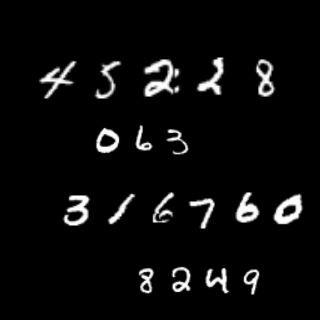 4 5 2 2 8
0 6 3
3 1 6 7 6 0
8 2 4 9